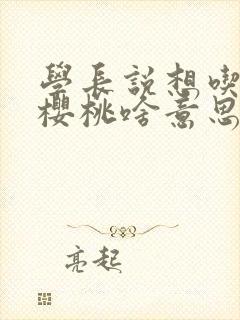 學長説想喫
櫻桃啥意思
亮起